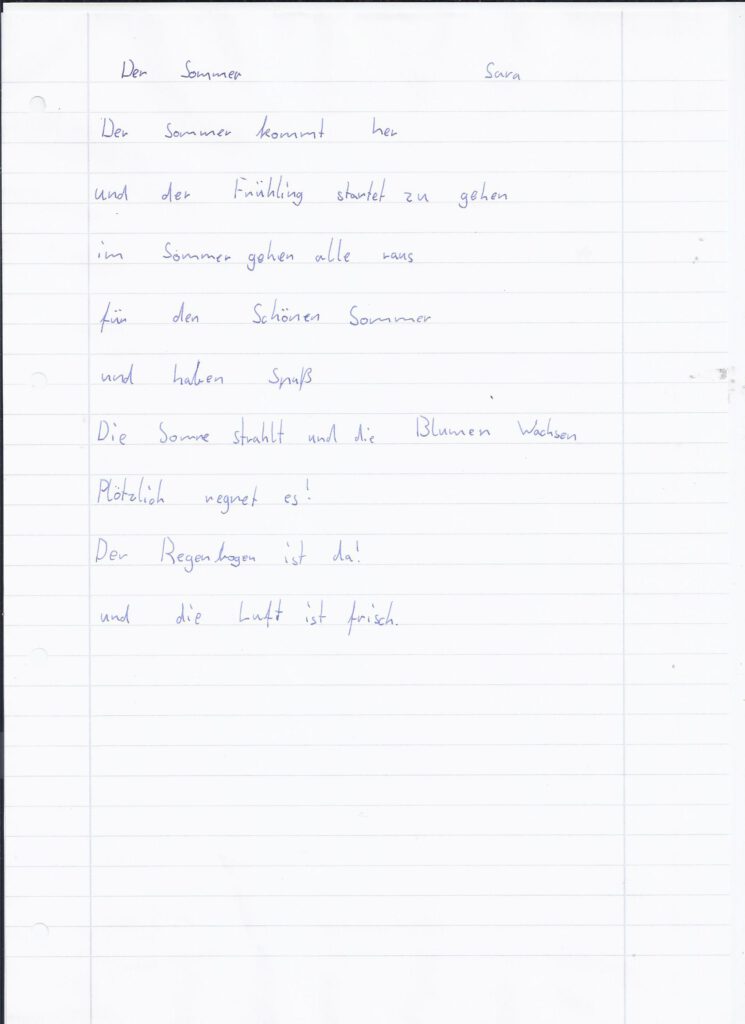 Der Sommer Sara
Der Sommer kommt her
und der Frühling startet zu gehen
im Sommer gehen alle raus
für den Schönen Sommer
und haben Spaß
Die Sonne strahlt und die Blumen Wachsen
Plötzlich regnet es!
Der Regenbogen ist da!
und die Luft ist frisch.